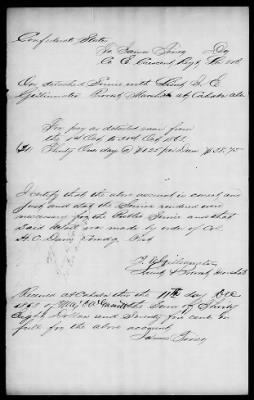 Confederate States
To James Finey Dr
Co E Crescent Regt La Vol
On detached Service with Lieut
Provost Marshal at Cahaba Ala
For pay as detailed man from
the 1st Oct to 31st Oct
(31) Thirty One days @ $1.25 per Diem $38.75
I certify that the above account is correct and
just and that the Service rendered were
necessary for the Public Service and that
said detail was made by order of Col.
H. C. Davis Comdg Post
Lieut & Provost Marshal
Received at Cahaba this the 11th day Dec
of Maj the Sum of Thirty
Eight Dollars and Seventy five cents in
full for the above account
James